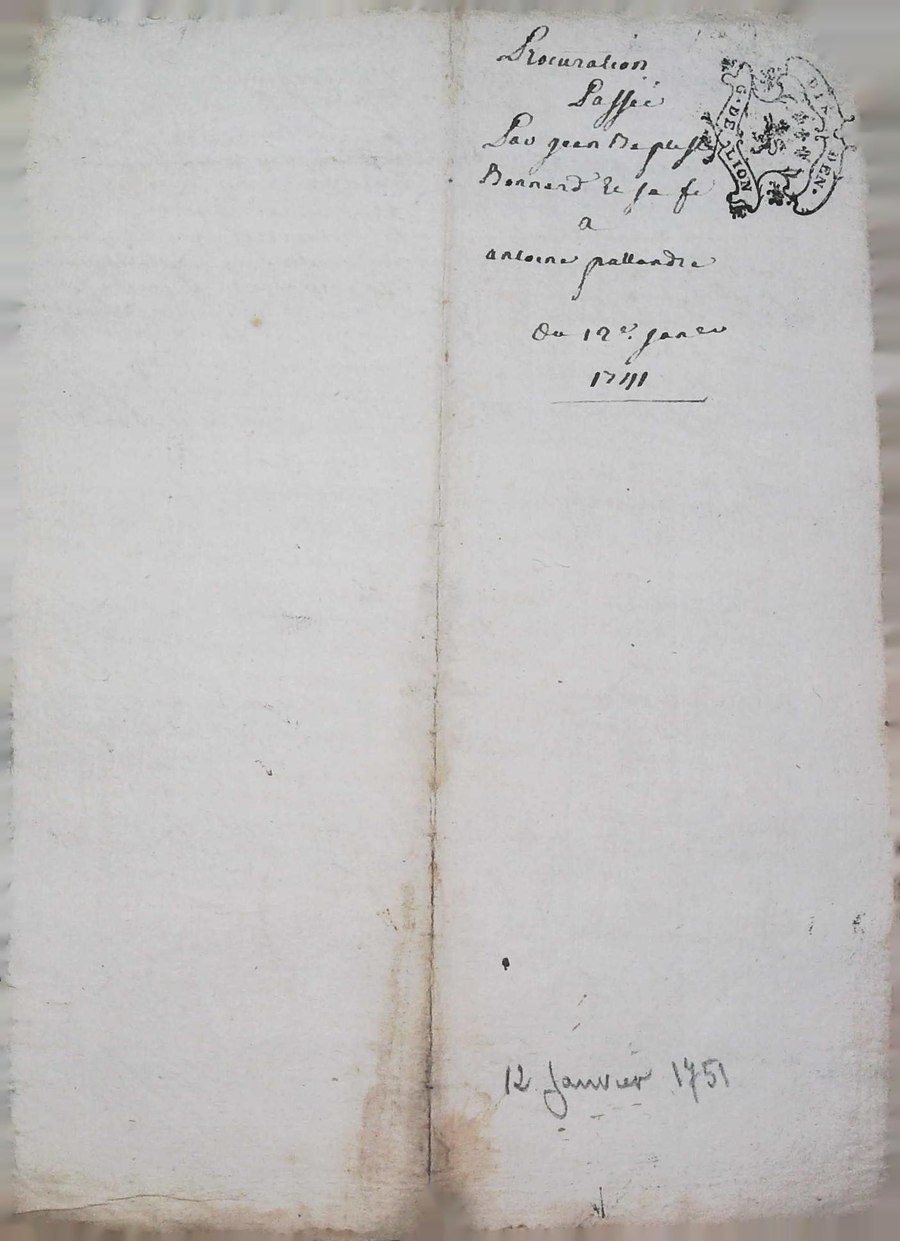 Procuration
Passée
Par jean Baptiste
Bonnard Et sa fe
a
antoine pallandre
Du 12e. janer
1751
G. DE LION
DIX DEN.
12 Janvier 1751